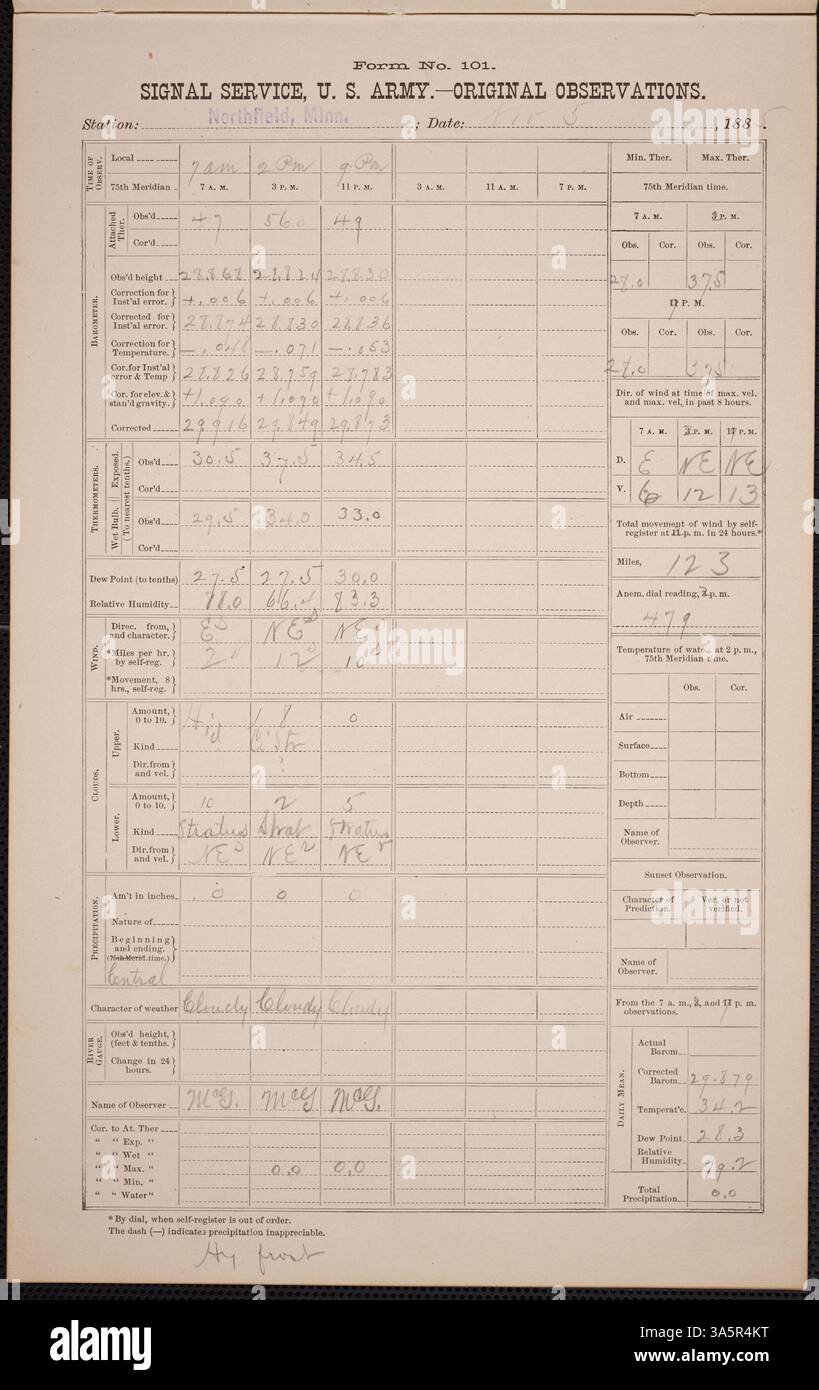 Form No. 101.
SIGNAL SERVICE, U. S. ARMY.—ORIGINAL OBSERVATIONS.
Station: Northfield, Minn. ; Date: Nov 5 , 1885.
TIME OF OBSERV. Local 7 am 2 Pm 9 Pm
75th Meridian 7 A. M. 3 P. M. 11 P. M. 3 A. M. 11 A. M. 7 P. M.
BAROMETER.
Attached Ther. Obs'd 47 560 49
Cor'd
Obs'd height 28.868 28.824 28.830
Correction for Inst'al error. +.006 +.006 +.006
Corrected for Inst'al error. 28.874 28.830 28.836
Correction for Temperature. —.048 —.071 —.053
Cor. for Inst'al error & Temp 28.826 28.759 28.783
Cor. for elev. & stan'd gravity. +1.090 +1.090 +1.090
Corrected 29.916 29.849 29.873
THERMOMETERS.
Exposed. (To nearest tenths.) Obs'd 30.5 37.5 34.5
Cor'd
Wet Bulb. Obs'd 29.5 34.0 33.0
Cor'd
Dew Point (to tenths) 27.5 27.5 30.0
Relative Humidity 88.0 66.4 83.3
WIND.
Direc. from, and character. E NE NE
*Miles per hr. by self-reg. 2 12 10
*Movement, 8 hrs., self-reg.
CLOUDS.
Upper. Amount, 0 to 10. Hid 8 0
Kind Ci Str
Dir. from and vel. ?
Lower. Amount, 0 to 10. 10 2 5
Kind Stratus Strat Stratus
Dir. from and vel. NE NE NE
PRECIPITATION.
Am't in inches 0 0 0
Nature of
Beginning and ending. (75th Merid. time.)
Central
Character of weather Cloudy Cloudy Cloudy
RIVER GAUGE.
Obs'd height, (feet & tenths.
Change in 24 hours.
Name of Observer McG. McG McG.
Cor. to At. Ther
" " Exp. "
" " Wet "
" " Max. " 0.0 0.0
" " Min. "
" " Water "
*By dial, when self-register is out of order.
The dash (—) indicates precipitation inappreciable.
Hy frost
Min. Ther. Max. Ther.
75th Meridian time.
7 A. M. 3 P. M.
Obs. Cor. Obs. Cor.
28.0 37.5
11 P. M.
Obs. Cor. Obs. Cor.
28.0 37.5
Dir. of wind at time of max. vel. and max. vel., in past 8 hours.
7 A. M. 3 P. M. 11 P. M.
D. E NE NE
V. 6 12 13
Total movement of wind by self-register at 11 p. m. in 24 hours.*
Miles, 123
Anem. dial reading, 3 p. m.
479
Temperature of water at 2 p. m., 75th Meridian time.
Obs. Cor.
Air
Surface
Bottom
Depth
Name of Observer.
Sunset Observation.
Character of Prediction. Ver. or not verified.
Name of Observer.
From the 7 a. m., 3, and 11 p. m. observations.
DAILY MEAN.
Actual Barom
Corrected Barom 29.879
Temperat'e. 34.2
Dew Point. 28.3
Relative Humidity 79.2
Total Precipitation 0.0
alamy
a
alamy
Image ID: 3A5R4KT
www.alamy.com